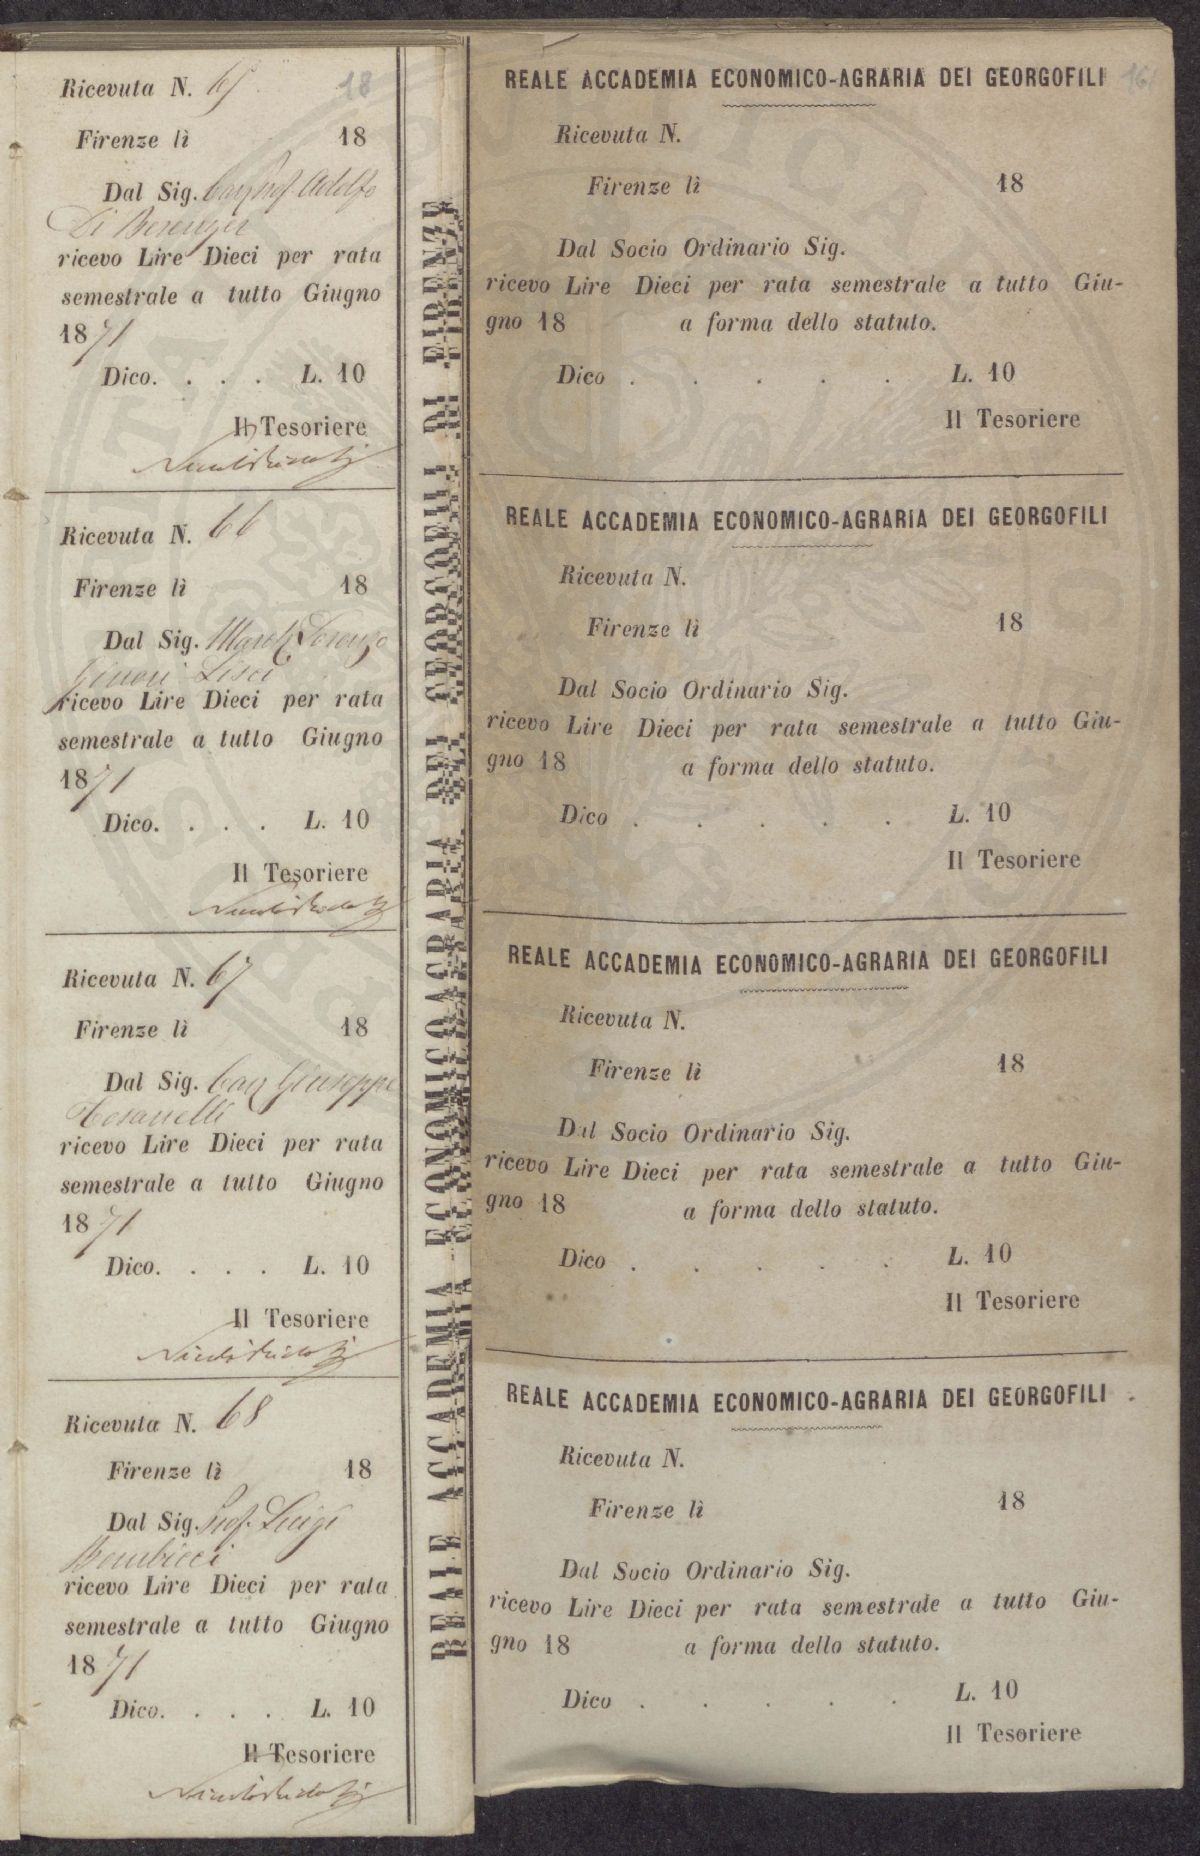 Ricevuta N. 65
18
Firenze lì 18
Dal Sig. Cav Prof. Adolfo
Di Berenger
ricevo Lire Dieci per rata
semestrale a tutto Giugno
1871
Dico. . . . L. 10
Il Tesoriere
Ricevuta N. 66
Firenze lì 18
Dal Sig. March Lorenzo
Ginori Lisci
ricevo Lire Dieci per rata
semestrale a tutto Giugno
1871
Dico. . . . L. 10
Il Tesoriere
Ricevuta N. 67
Firenze lì 18
Dal Sig. Cav Giuseppe
ricevo Lire Dieci per rata
semestrale a tutto Giugno
1871
Dico. . . . L. 10
Il Tesoriere
Ricevuta N. 68
Firenze lì 18
Dal Sig. Prof. Luigi
Bombicci
ricevo Lire Dieci per rata
semestrale a tutto Giugno
1871
Dico. . . . L. 10
Il Tesoriere
REALE ACCADEMIA ECONOMICO AGRARIA DEI GEORGOFILI DI FIRENZE
REALE ACCADEMIA ECONOMICO-AGRARIA DEI GEORGOFILI
Ricevuta N.
Firenze lì 18
Dal Socio Ordinario Sig.
ricevo Lire Dieci per rata semestrale a tutto Giu-
gno 18 a forma dello statuto.
Dico . . . . . L. 10
Il Tesoriere
REALE ACCADEMIA ECONOMICO-AGRARIA DEI GEORGOFILI
Ricevuta N.
Firenze lì 18
Dal Socio Ordinario Sig.
ricevo Lire Dieci per rata semestrale a tutto Giu-
gno 18 a forma dello statuto.
Dico . . . . . L. 10
Il Tesoriere
REALE ACCADEMIA ECONOMICO-AGRARIA DEI GEORGOFILI
Ricevuta N.
Firenze lì 18
Dal Socio Ordinario Sig.
ricevo Lire Dieci per rata semestrale a tutto Giu-
gno 18 a forma dello statuto.
Dico . . . . . L. 10
Il Tesoriere
REALE ACCADEMIA ECONOMICO-AGRARIA DEI GEORGOFILI
Ricevuta N.
Firenze lì 18
Dal Socio Ordinario Sig.
ricevo Lire Dieci per rata semestrale a tutto Giu-
gno 18 a forma dello statuto.
Dico . . . . . L. 10
Il Tesoriere